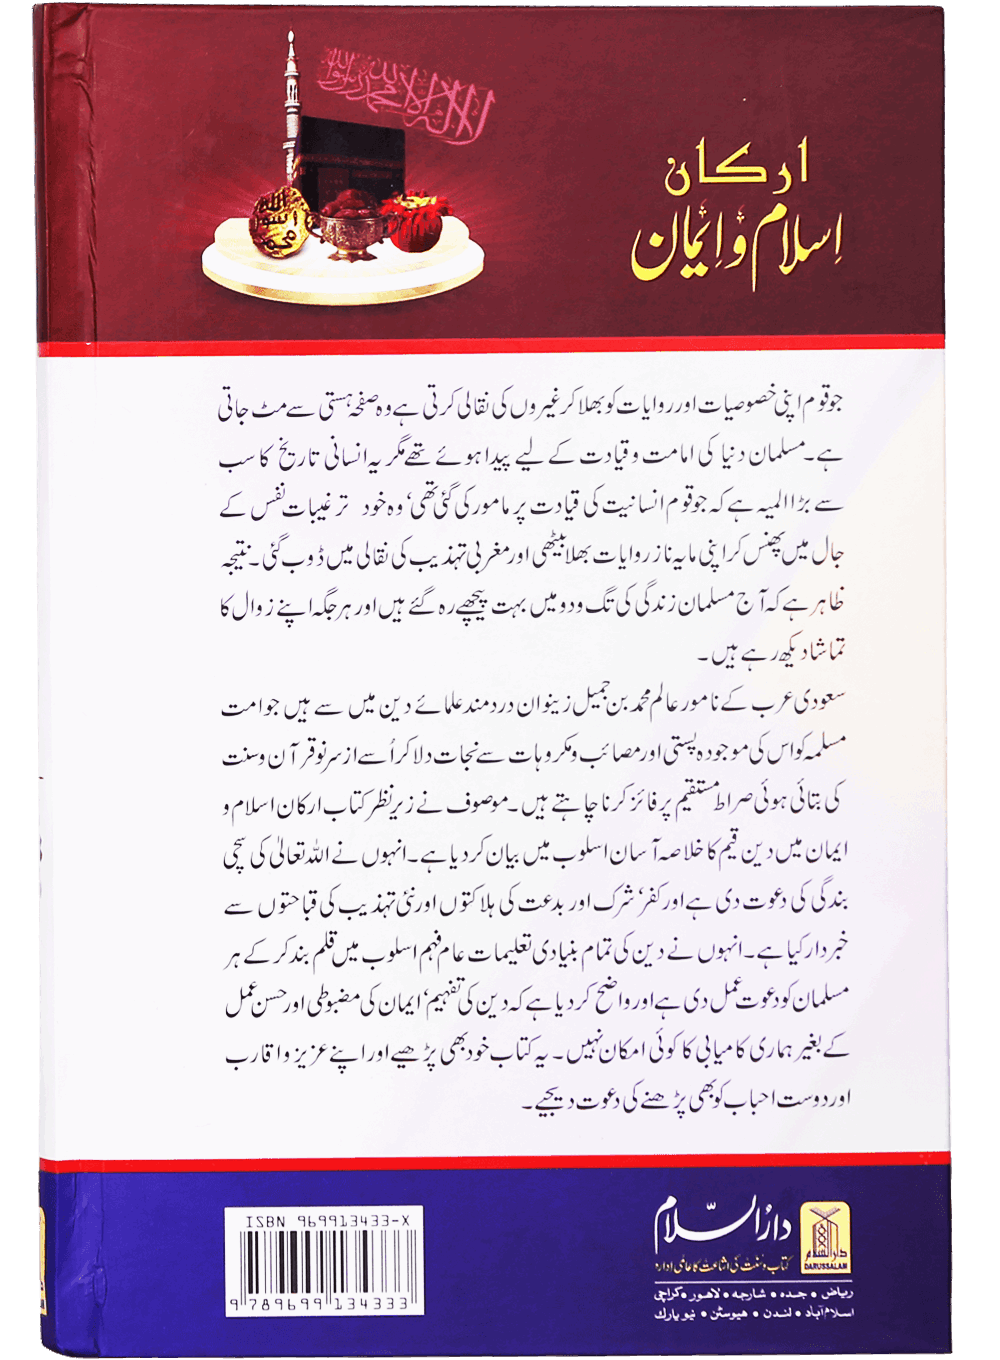 لا الہ الا اللہ محمد رسول اللہ
ارکان
اِسلام و اِیمان
اللہ
رسول
محمد
جو قوم اپنی خصوصیات اور روایات کو بھلا کر غیروں کی نقالی کرتی ہے وہ صفحہ ہستی سے مٹ جاتی
ہے۔ مسلمان دنیا کی امامت و قیادت کے لیے پیدا ہوئے تھے مگر یہ انسانی تاریخ کا سب
سے بڑا المیہ ہے کہ جو قوم انسانیت کی قیادت پر مامور کی گئی تھی، وہ خود ترغیبات نفس کے
جال میں پھنس کر اپنی مایہ ناز روایات بھلا بیٹھی اور مغربی تہذیب کی نقالی میں ڈوب گئی۔ نتیجہ
ظاہر ہے کہ آج مسلمان زندگی کی تگ و دو میں بہت پیچھے رہ گئے ہیں اور ہر جگہ اپنے زوال کا
تماشا دیکھ رہے ہیں۔
سعودی عرب کے نامور عالم محمد بن جمیل زینو ان دردمند علمائے دین میں سے ہیں جو امت
مسلمہ کو اس کی موجودہ پستی اور مصائب و مکروہات سے نجات دلا کر اُسے از سر نو قرآن و سنت
کی بتائی ہوئی صراط مستقیم پر فائز کرنا چاہتے ہیں۔ موصوف نے زیر نظر کتاب ارکان اسلام و
ایمان میں دین قیم کا خلاصہ آسان اسلوب میں بیان کر دیا ہے۔ انہوں نے اللہ تعالیٰ کی سچی
بندگی کی دعوت دی ہے اور کفر، شرک اور بدعت کی ہلاکتوں اور نئی تہذیب کی قباحتوں سے
خبردار کیا ہے۔ انہوں نے دین کی تمام بنیادی تعلیمات عام فہم اسلوب میں قلم بند کر کے ہر
مسلمان کو دعوت عمل دی ہے اور واضح کر دیا ہے کہ دین کی تفہیم، ایمان کی مضبوطی اور حسن عمل
کے بغیر ہماری کامیابی کا کوئی امکان نہیں۔ یہ کتاب خود بھی پڑھیے اور اپنے عزیز و اقارب
اور دوست احباب کو بھی پڑھنے کی دعوت دیجیے۔
دارُالسّلام
کتاب و سنت کی اشاعت کا عالمی ادارہ
دارالسلام
DARUSSALAM
ریاض • جدہ • شارجہ • لاہور • کراچی
اسلام آباد • لندن • ہیوسٹن • نیو یارک
ISBN 969913433-X
9 789699 134333